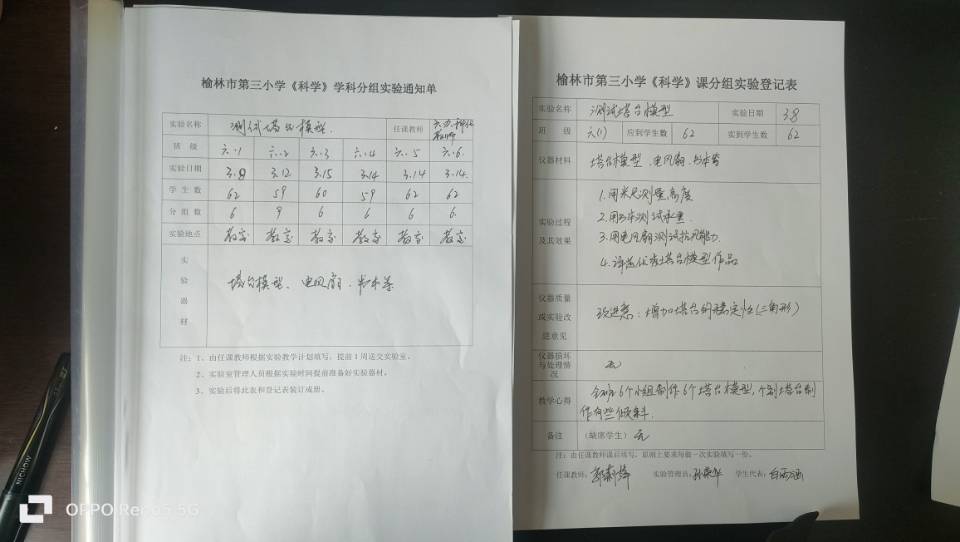 榆林市第三小学《科学》学科分组实验通知单
实验名称 测试塔台模型 任课教师
班级 六.1 六.2 六.3 六.4 六.5 六.6
实验日期 3.8 3.12 3.15 3.14 3.14 3.14
学生数 62 59 60 59 62 62
分组数 6 9 6 6 6 6
实验地点 教室 教室 教室 教室 教室 教室
实验器材 塔台模型、电风扇、书本等
注：1、由任课教师根据实验教学计划填写，提前1周送交实验室。
2、实验室管理人员根据实验时间提前准备好实验器材。
3、实验后将此表和登记表装订成册。
榆林市第三小学《科学》课分组实验登记表
实验名称 测试塔台模型 实验日期 3.8
班级 六(1) 应到学生数 62 实到学生数 62
仪器材料 塔台模型、电风扇、书本等
实验过程及其效果
1.用米尺测量高度
2.用书本测试承重.
3.用电风扇测试抗风能力.
4.评选优秀塔台模型作品
仪器质量或实验改进意见 改进意：增加塔台的稳定性(三角形)
仪器损坏与处理情况 无
教学心得 全班6个小组制作6个塔台模型，个别塔台制
作有些倾斜.
备注 （缺席学生）无
注：由任课教师课后填写，原则上要求每做一次实验填写一份。
任课教师： 实验管理员： 学生代表：
NICHOW
OPPO Reno5 5G